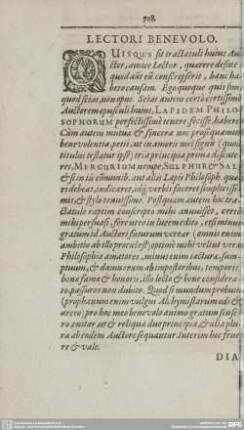 708.
LECTORI BENEVOLO.
QUISQUS sit tractatuli huius Au-
ctor, amice Lector, quærere desine
quod aut eū conscripserit, hanc ha-
beto causam. Ego quoque quis sim,
quod scias, non opus. Scias autem certò certissimè
Auctorem opusculi huius, LAPIDEM PHILO-
SOPHORUM perfectissimè tenere, fecisse, habere.
Cum autem mutua & sincera nos prosequamur
benevolentia, petii, ut in amoris mei signū (quod
titulus testatur ipse) tria principia prima
ret, MERCURIUM nempe, SULPHUR & SAL,
& si in iis cōmuni b. aut aliis Lapis Philosoph. quæ-
ri debeat, indicaret, idq́; verbis faceret simplicissi-
mis, & stylo tenuissimo. Postquam autem hoc tra-
ctatulo raptim conscripto mihi annuisset, certò
mihi persuasi, fore ut ro in lucem edito, etsi minus
gratum id Auctori futurum verear (omnis enim
ambitio ab illo procul est) optimè mihi velint veræ
Philosophiæ amatores, minus enim iactura, sum-
ptuum, & damnorum ab impostoribus, temporis,
bona fama & honoris, illo lecto & bene considera-
to passuros non dubito. Quod si mundum probum
(prophanum enim vulgus Alchymistarum odi &
arceo) pro hoc meo benevolo animo gratum sensē-
ro, enitar ut & reliqua duo principia & alia plu-
ra ab eodem Auctore sequantur. Interim hoc frue-
re & vale.
DIA